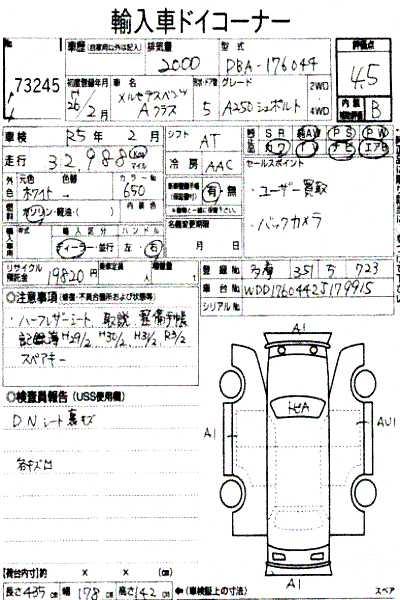 輸入車ドイコーナー
No
73245
車歴 (自家用以外は記入)
排気量 2000
型式 DBA-176044
評価点 4.5
内装 B
初度登録年月 26/2月
車名 メルセデスベンツ Aクラス
形状・ドア 5
グレード A250シュポルト
2WD
4WD
車検 R5年 2月
シフト AT
SR 革 AW PS PW
カワ ナビ エアB
走行 32,988 Km マイル
冷房 AAC
セールスポイント
・ユーザー買取
・バックカメラ
外色 元色 色替 ホワイト→
カラーNo 650
内装色
有 無
燃料 ガソリン・軽油・( )
名義変更期限 月 日
輸入車 年式 輸入区分 ハンドル
ディーラー・並行 左・右
リサイクル預託金 19820円
乗車定員 人
積載量
登録No 多摩 351 ち 723
車台No WDD1760442J179915
シリアルNo
◎注意事項 (修復・不具合箇所および状態等)
・ハーフレザーシート、取説 整備手帳
記録簿H29/2、H30/2、H31/2、R3/2
スペアキー
◎検査員報告 (USS使用欄)
DNシート裏キズ
各キズ凹
A1
A1
AU1
A1
【荷台内寸】約 × × (cm)
長さ 435 cm 幅 178 cm 高さ 142 cm ←(車検証上の寸法)
スペア